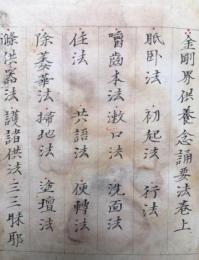 金剛界供養念誦要法卷上
眂臥法 初起法 行法
嚼齒本法 漱口法 洗面法
住法 共語法 便轉法
除萎華法 掃地法 塗壇法
滌供器法 護諸供法 三三昧耶